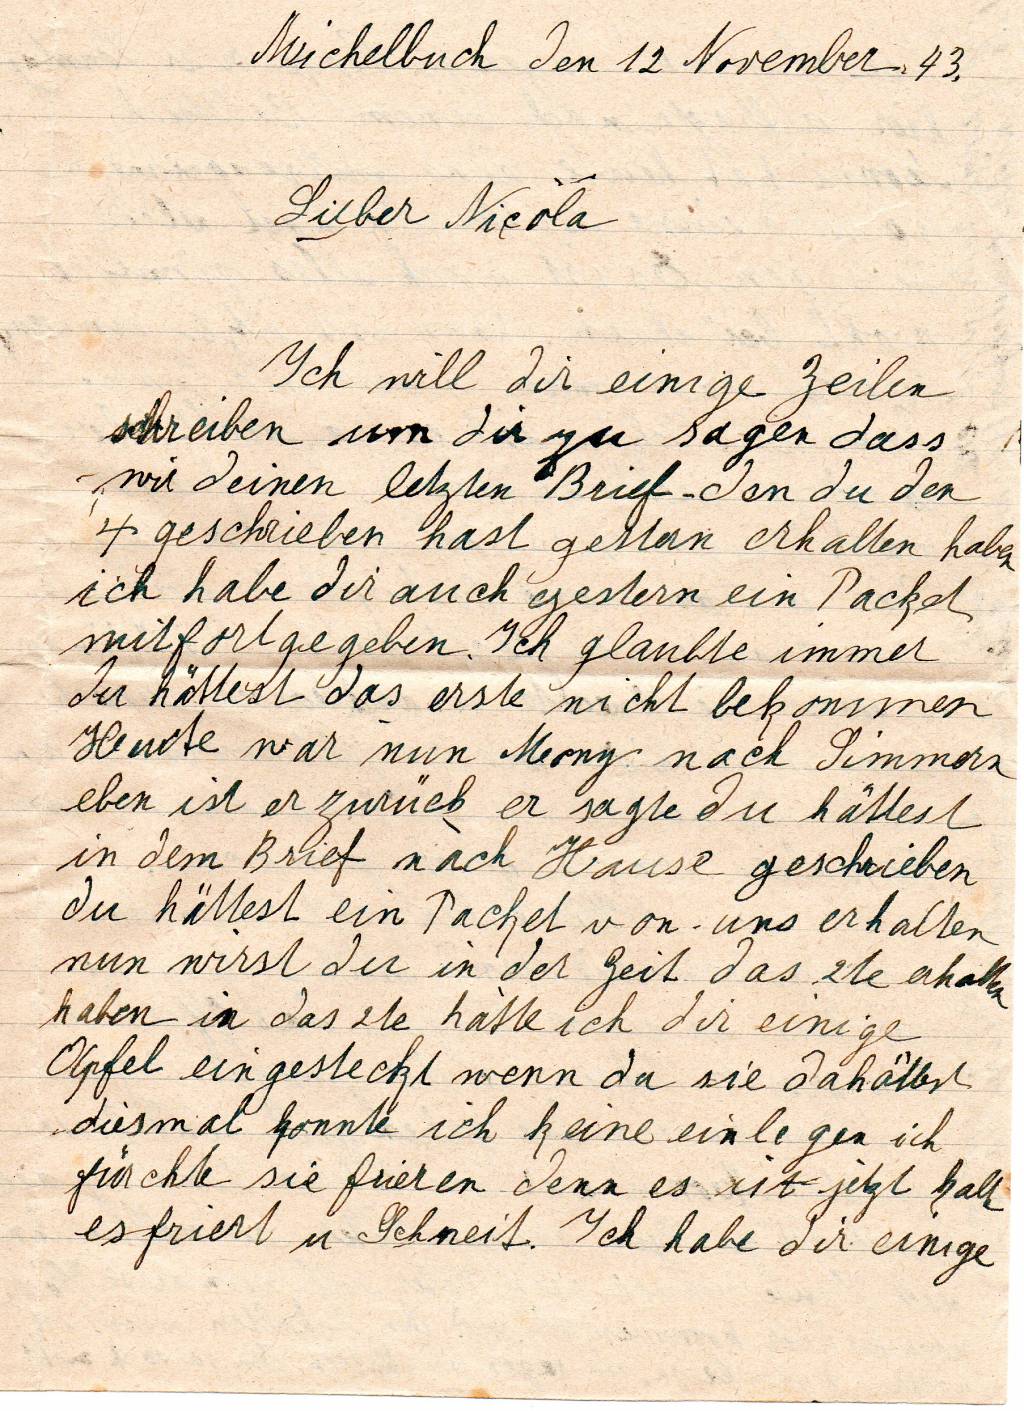 Michelbuch den 12 November. 43.
Lieber Nicola
Ich will dir einige Zeilen
schreiben um dir zu sagen dass
wir deinen letzten Brief den du den
4 geschrieben hast gestern erhalten haben
ich habe dir auch gestern ein Packet
mitfortgegeben. Ich glaubte immer
du hättest das erste nicht bekommen
Heute war nun nach Simmern
eben ist er zurück er sagte du hättest
in dem Brief nach Hause geschrieben
du hättest ein Packet von uns erhalten
nun wirst du in der Zeit das 2te erhalten
haben in das 2te hatte ich dir einige
Äpfel eingesteckt wenn du sie da hättest
diesmal konnte ich keine einlegen ich
fürchte sie frieren denn es ist jetzt kalt
es friert u Schneit. Ich habe dir einige